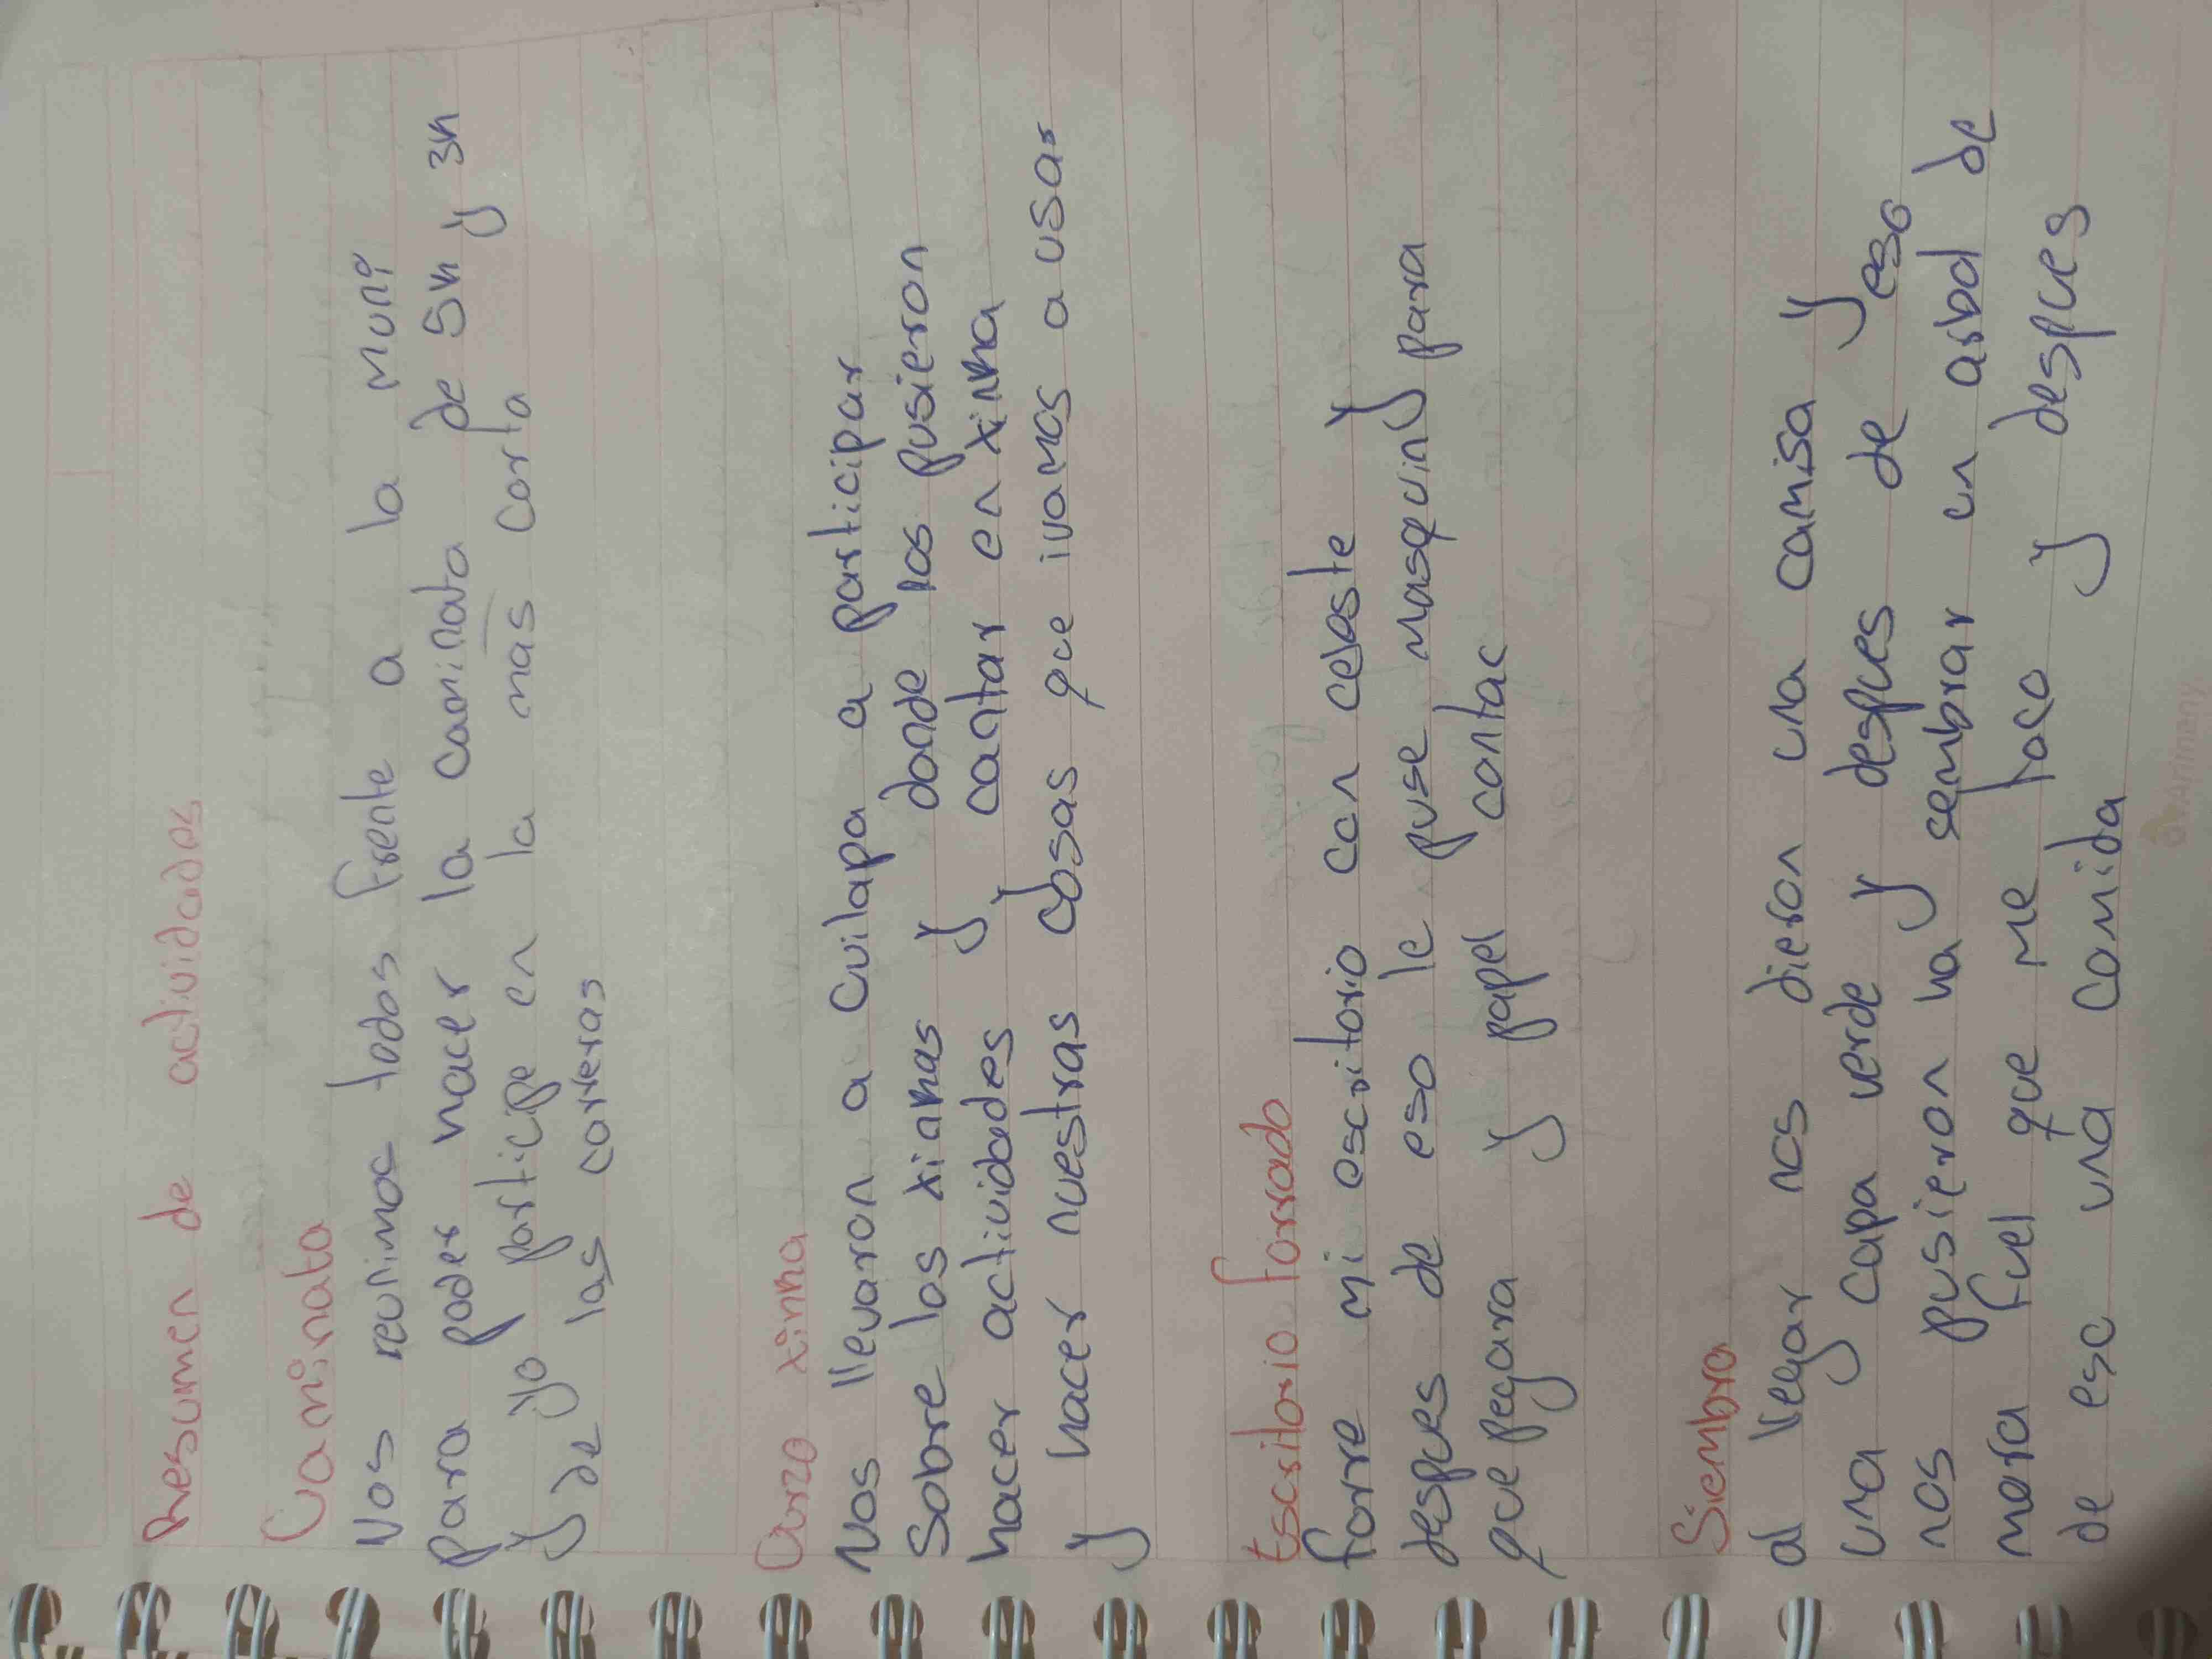 Resumen de actividades
Caminata
Nos reunimos todos frente a la muni
para poder hacer la caminata de 5k y 3k
y yo participe en la más corta
de las carreras
Curzo xinha
Nos llevaron a cuilapa a participar
sobre los xinhas y donde nos pusieron
hacer actividades y cantar en xinha
y hacer nuestras cosas que ivamos a usar
Escritorio forrado
forre mi escritorio con celaste y
despues de eso le puse masquin y para
que pegara y papel contac
Siembra
al llegar nos dieron una camisa y
una capa verde y despues de eso
nos pusieron ha sembrar un arbol de
mora fuel que me toco y despues
de eso una comida
Arimany